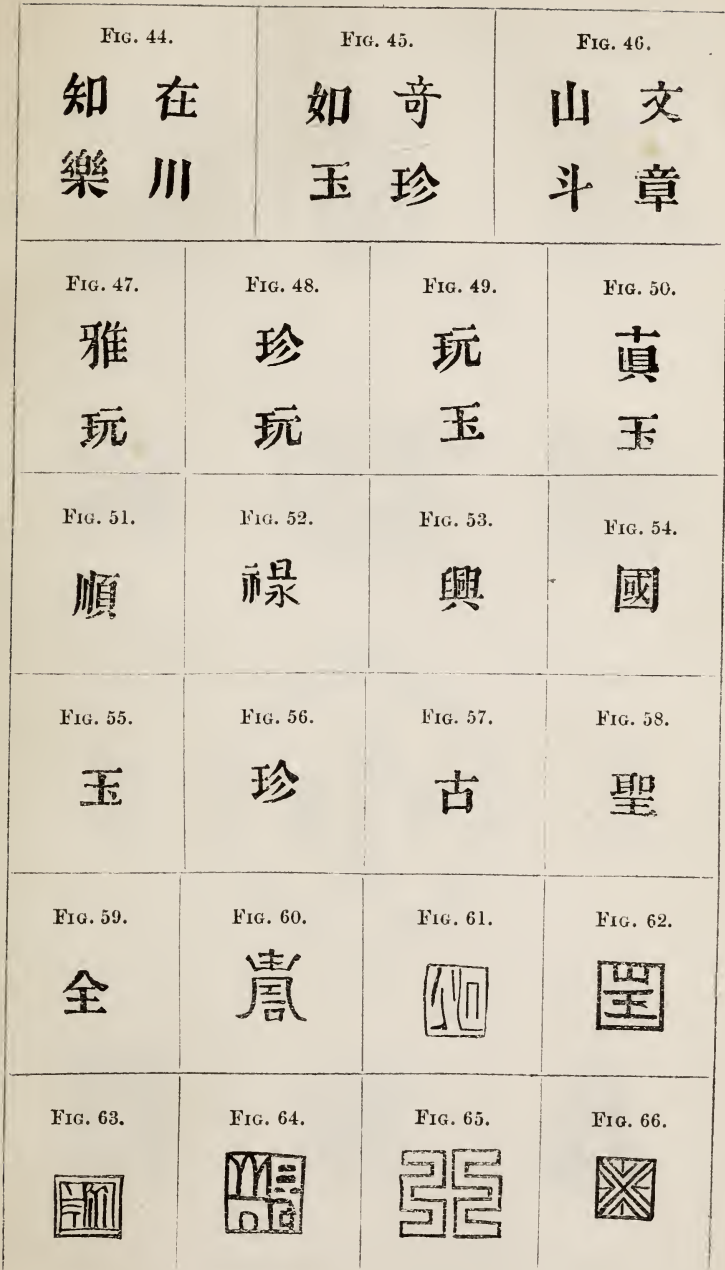 FIG. 44.
在川
知樂
FIG. 45.
竒珍
如玉
FIG. 46.
文章
山斗
FIG. 47.
雅玩
FIG. 48.
珍玩
FIG. 49.
玩玉
FIG. 50.
眞玉
FIG. 51.
順
FIG. 52.
禄
FIG. 53.
興
FIG. 54.
國
FIG. 55.
玉
FIG. 56.
珍
FIG. 57.
古
FIG. 58.
聖
FIG. 59.
全
FIG. 60.
FIG. 61.
FIG. 62.
FIG. 63.
FIG. 64.
FIG. 65.
FIG. 66.